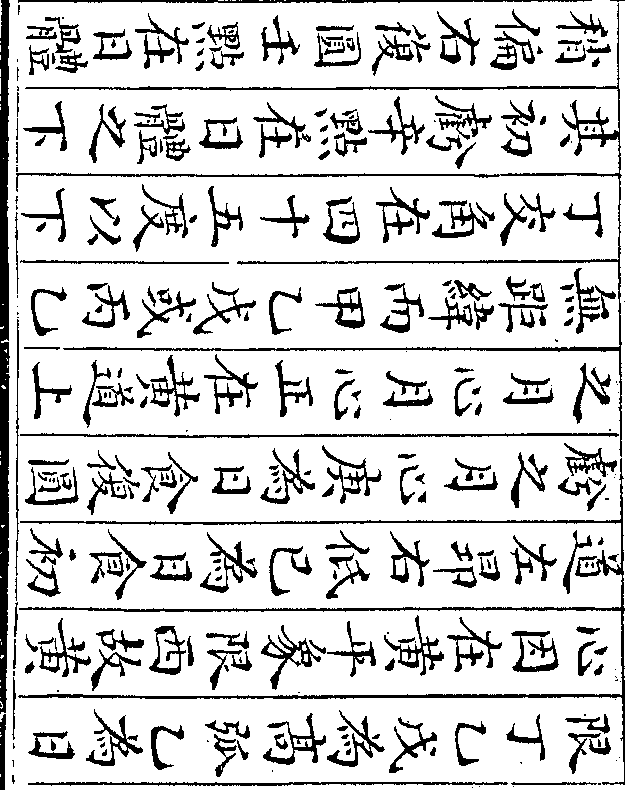 限丁乙戊為高弧乙為日
心因在黃平象限西故黃
道左昂右低己為日食初
虧之月心庚為日食復圓
之月心月心正在黃道上
無距緯而甲乙戊或丙乙
丁交角在四十五度以下
其初虧辛點在日體之下
稍偏右復圓壬點在日體